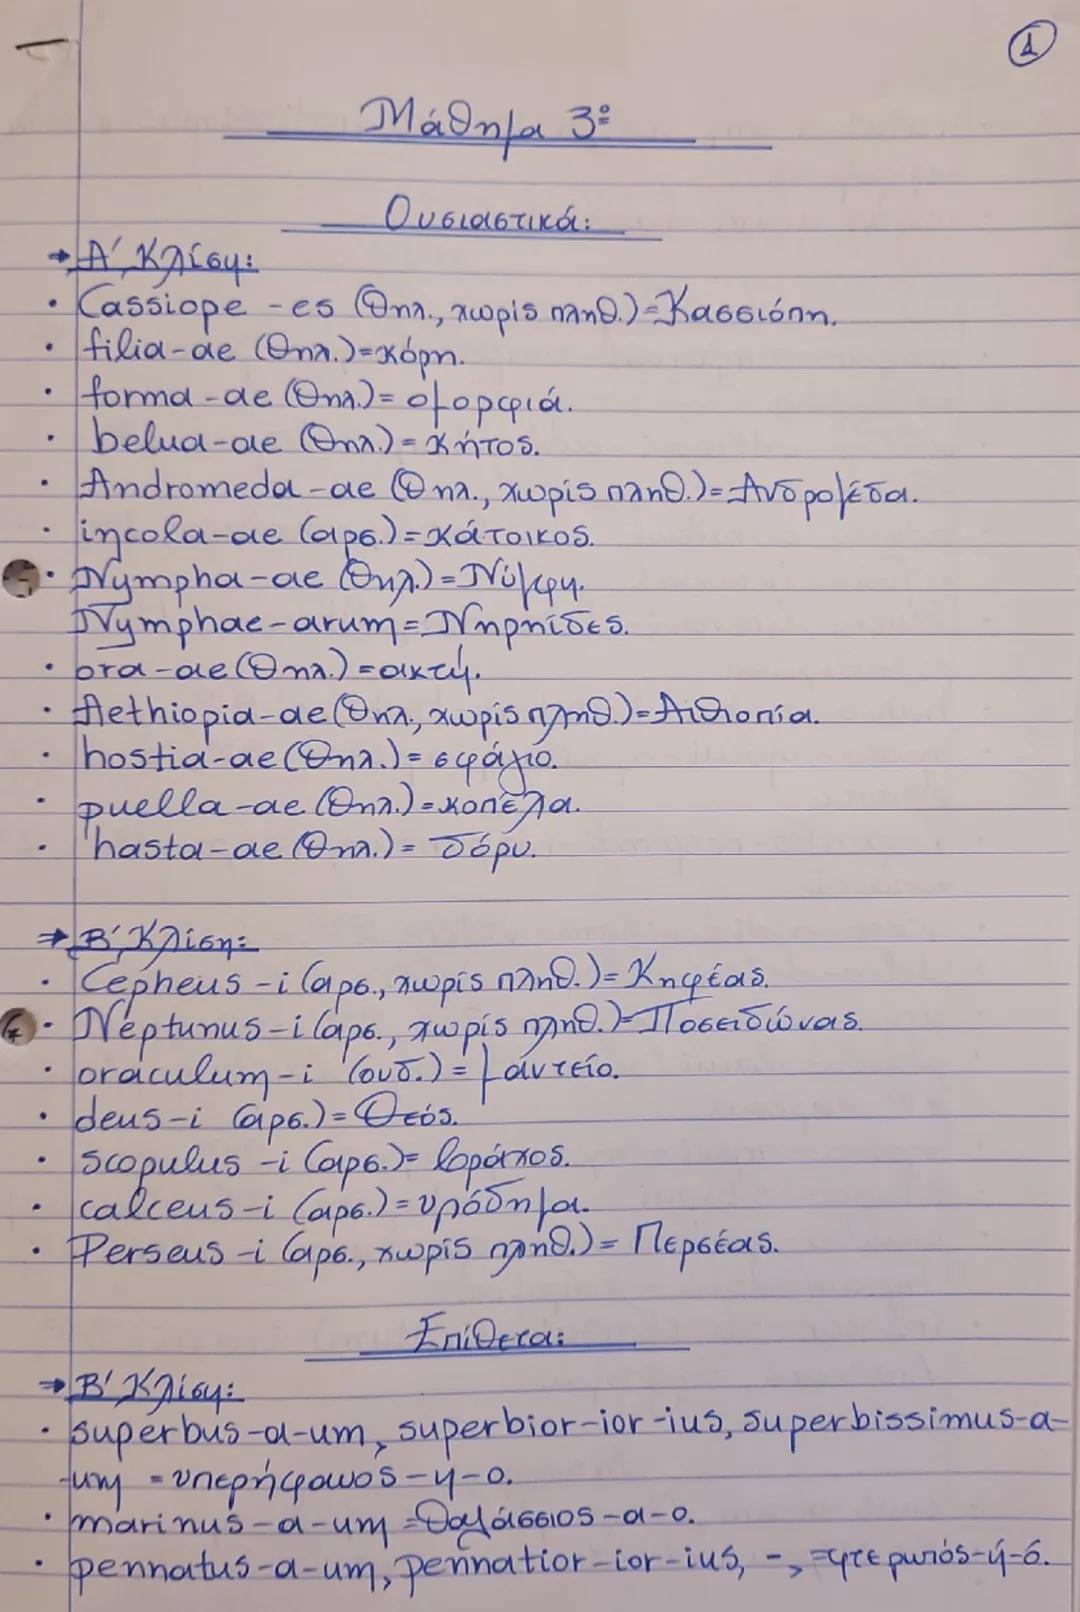 1
Μάθημα 3º
Ουσιαστικά:
→ Α' Κλίση:
• Cassiope -es (θηλ., χωρίς πληθ.)=Κασσιόπη.
• filia-ae (θηλ.)=κόρη.
• forma-ae (θηλ.)= ομορφιά.
• belua-ae (θηλ.)= κήτος.
• Andromeda-ae (θηλ., χωρίς πληθ.)=Ανδρομέδα.
• incola-ae (αρσ.)=κάτοικος.
• Nympha-ae (θηλ.)=Νύμφη.
Nymphae-arum=Νηρηίδες.
• ora-ae (θηλ.)=ακτή.
• Aethiopia-ae (θηλ., χωρίς πληθ.)=Αιθιοπία.
• hostia-ae (θηλ.)= σφάγιο.
• puella-ae (θηλ.)=κοπέλα.
• hasta-ae (θηλ.)= δόρυ.
→ Β' Κλίση:
• Cepheus -i (αρσ., χωρίς πληθ.)= Κηφέας.
• Neptunus-i (αρσ., χωρίς πληθ.)=Ποσειδώνας.
• oraculum-i (ουδ.)= μαντείο.
• deus-i (αρσ.)= Θεός.
• scopulus -i (αρσ.)= βράχος.
• calceus-i (αρσ.)=υπόδημα.
• Perseus -i (αρσ., χωρίς πληθ.)= Περσέας.
Επίθετα:
→ Β' Κλίση:
• superbus-a-um, superbior-ior-ius, superbissimus-a-
-um =υπερήφανος-η-ο.
• marinus-a-um =θαλάσσιος-α-ο.
• pennatus-a-um, pennatior-ior-ius, -, =φτερωτός-ή-ό.